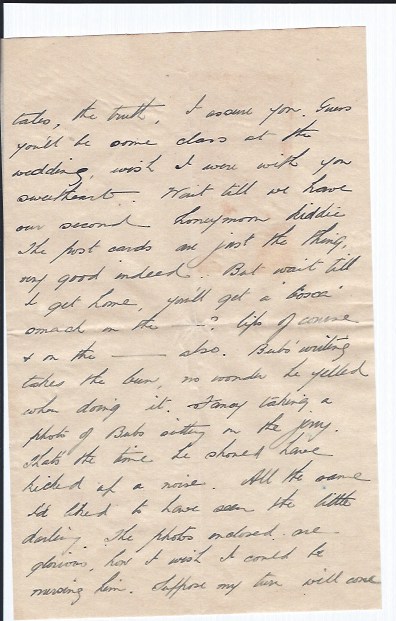 tales, the truth, I assure you. Guess
you'll be some class at the
wedding, wish I were with you
sweetheart. Wait till we have
our second honeymoon kiddie
The post cards are just the thing,
very good indeed. But wait till
I get home, you'll get a
smack on the —? lips of course
& on the —— also. Bubs' writing
takes the bun, no wonder he yelled
when doing it. Fancy taking a
photo of Bubs sitting on the jerry.
That's the time he should have
kicked up a noise. All the same
I'd liked to have seen the little
darling. The photos enclosed are
glorious, how I wish I could be
nursing him. Suppose my turn will come